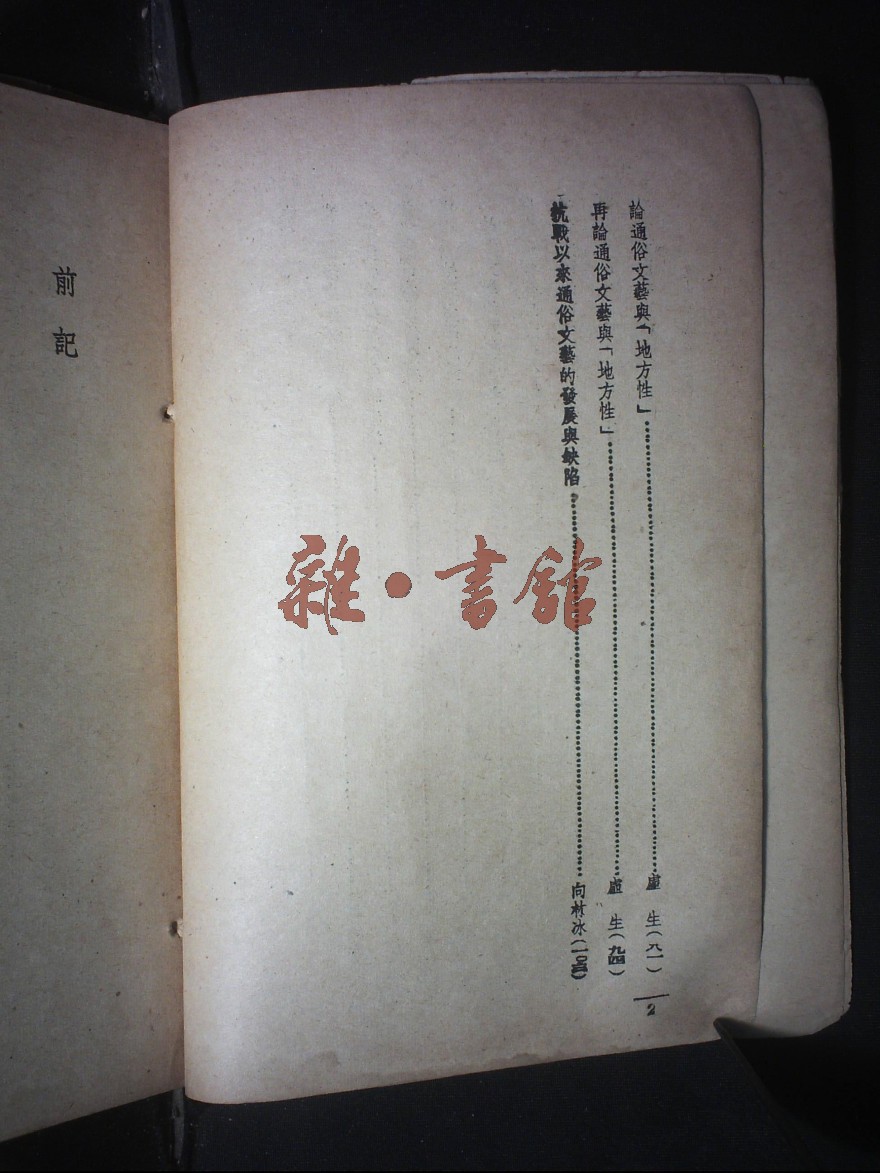 論通俗文藝與「地方性」……盧 生(八一)
再論通俗文藝與「地方性」……盧 生(九四)
抗戰以來通俗文藝的發展與缺陷……向林冰(一〇三)
2
前記
雜·書館